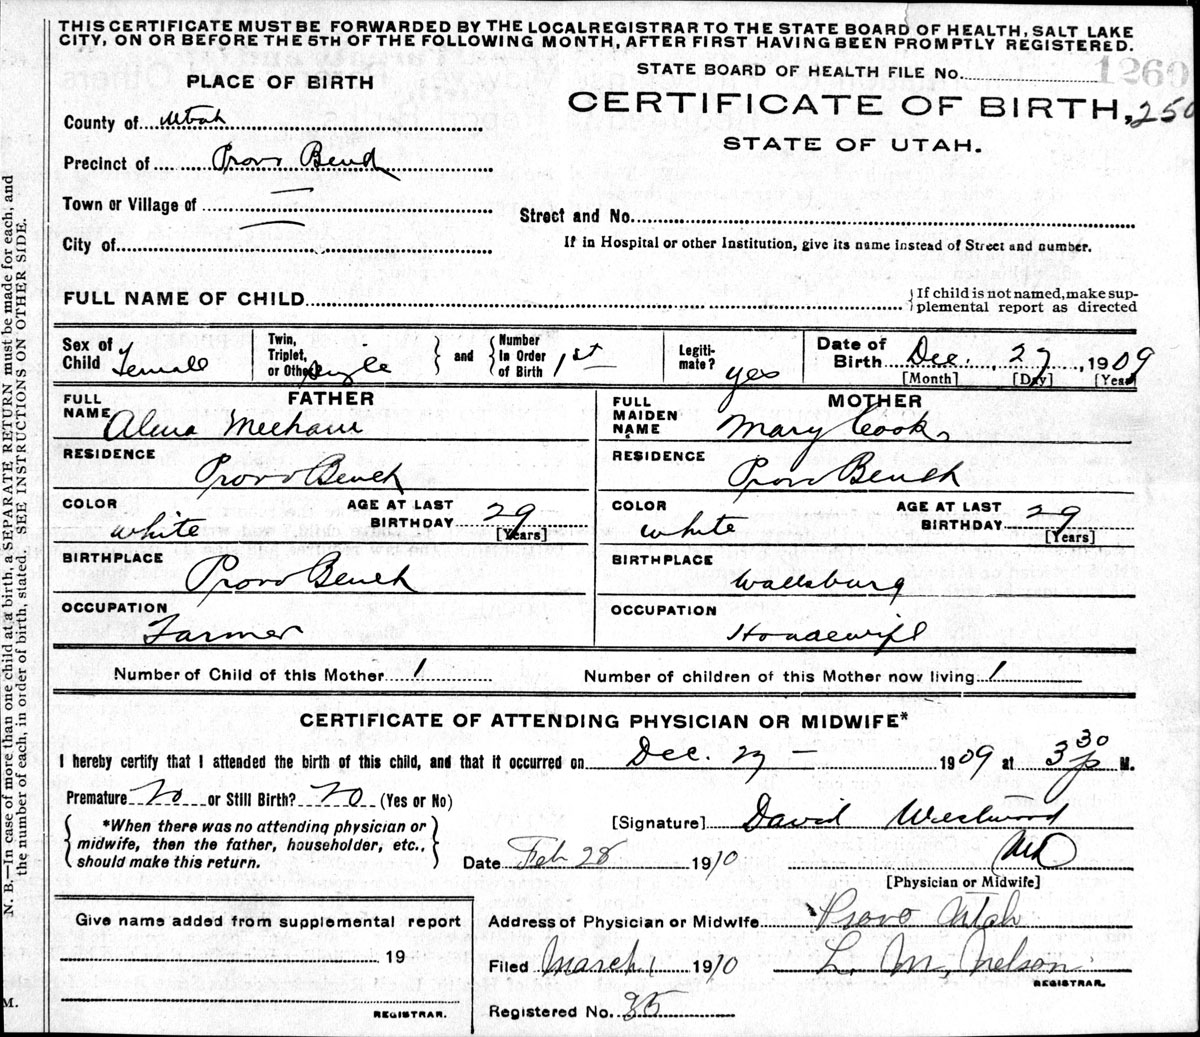 THIS CERTIFICATE MUST BE FORWARDED BY THE LOCAL REGISTRAR TO THE STATE BOARD OF HEALTH, SALT LAKE
CITY, ON OR BEFORE THE 5TH OF THE FOLLOWING MONTH, AFTER FIRST HAVING BEEN PROMPTLY REGISTERED.
PLACE OF BIRTH
STATE BOARD OF HEALTH FILE No. 1260
CERTIFICATE OF BIRTH, 250
STATE OF UTAH.
County of Utah
Precinct of Provo Bend
Town or Village of —
City of —
Street and No.
If in Hospital or other Institution, give its name instead of Street and number.
FULL NAME OF CHILD
{If child is not named, make sup-
plemental report as directed
Sex of Child Female
Twin, Triplet, or Other Single } and { Number In Order of Birth 1st
Legiti-mate? yes
Date of Birth Dec. 27, 1909
[Month] [Day] [Year]
FATHER
FULL NAME Alma Mecham
RESIDENCE
Provo Bench
COLOR white AGE AT LAST BIRTHDAY 29
[Years]
BIRTHPLACE
Provo Bench
OCCUPATION
Farmer
MOTHER
FULL MAIDEN NAME Mary Cook
RESIDENCE
Provo Bench
COLOR white AGE AT LAST BIRTHDAY 29
[Years]
BIRTHPLACE
Wallsburg
OCCUPATION
Housewife
Number of Child of this Mother 1
Number of children of this Mother now living 1
CERTIFICATE OF ATTENDING PHYSICIAN OR MIDWIFE*
I hereby certify that I attended the birth of this child, and that it occurred on Dec. 27 — 1909 at 3 30 p M.
Premature No or Still Birth? No (Yes or No)
{ *When there was no attending physician or
midwife, then the father, householder, etc.,
should make this return. }
[Signature] David Westwood
MD
[Physician or Midwife]
Date Feb 28 1910
Address of Physician or Midwife Provo Utah
Filed March 1 1910 L. M. Nelson
REGISTRAR.
Registered No. 35
Give name added from supplemental report
19
REGISTRAR.
N. B.—In case of more than one child at a birth, a SEPARATE RETURN must be made for each, and
the number of each, in order of birth, stated. SEE INSTRUCTIONS ON OTHER SIDE.
M.